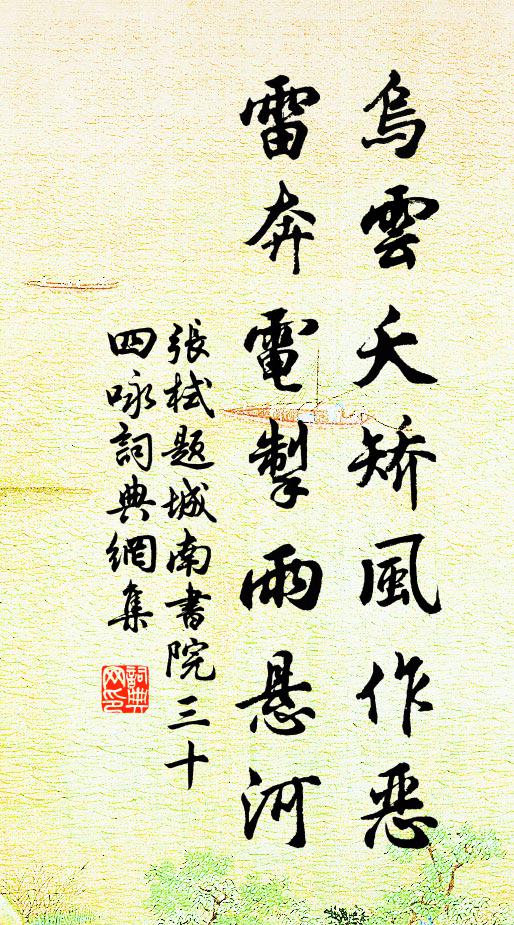 烏雲夭矯風作惡
雷奔電掣雨悬河
張栻題城南書院三十
四咏詞典網集
詞典
网印